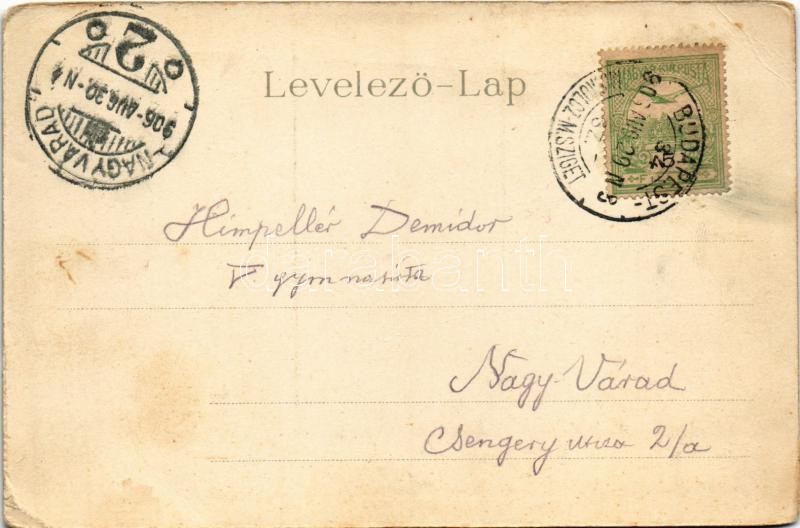 Levelező-Lap
NAGYVÁRAD
906 AUG. 30. N 4
2
BUDAPEST-
906 AUG 29 N
Himpellér Demidor
V gymnasista
Nagy-Várad
Csengery utcza 2/a
darabanth